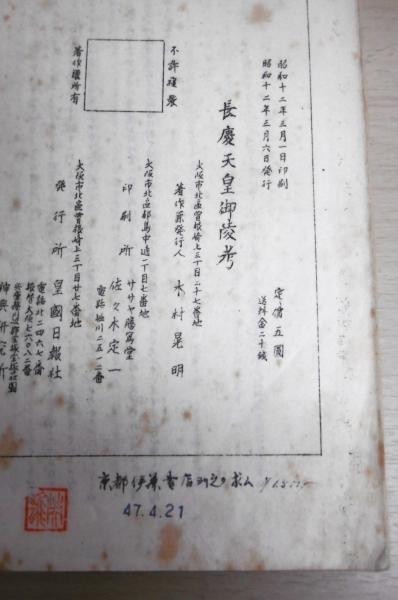 昭和十二年三月一日印刷
昭和十二年三月六日發行
定價五圓
送料金二十錢
長慶天皇御陵考
大阪市北區曽根崎上三丁目二十七番地
著作兼発行人 木村晃明
大阪市北區都島中通一丁目七番地
ササヤ勝寫堂
印刷所 佐々木定一
電話堀川二五一二番
大阪市北區曽根崎上三丁目廿七番地
發行所 皇國日報社
電話北二四六七番
振替大阪七六〇八二番
不許複製
著作權所有
京都伊藤書店ヨリ求ム
47.4.21